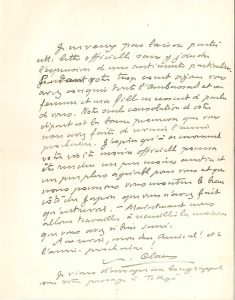 Je ne veux pas laisser partir
cette lettre officielle sans y joindre
l'expression de mes sentiments particuliers.
Pendant votre trop court séjour vous
avez conquis toute l'Ambassade et ma
femme et ma fille ne cessent de parler
de vous. Notre seule consolation de votre
départ est la bonne promesse que vous
nous avez faite de revenir l'année
prochaine. J'espère qu'à ce moment
votre visite moins officielle pourra
être un peu moins austère et
un peu plus agréable pour vous et que
nous pourrons vous montrer le beau
côté du Japon que vous n'avez fait
qu'entrevoir. Maintenant nous
allons travailler à recueillir la moisson
que vous avez si bien semée.
Au revoir, mon cher Amiral! et à
l'année prochaine!
Claudel
Je viens d'envoyer un long rapport
sur votre passage à Tokyo